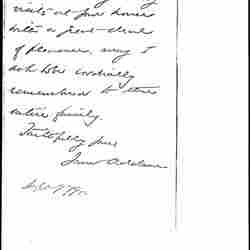 visits at your house
with a great deal
of pleasure, may I
ask to be cordially
remembered to the
entire family.
Faithfully yours
Jane Addams